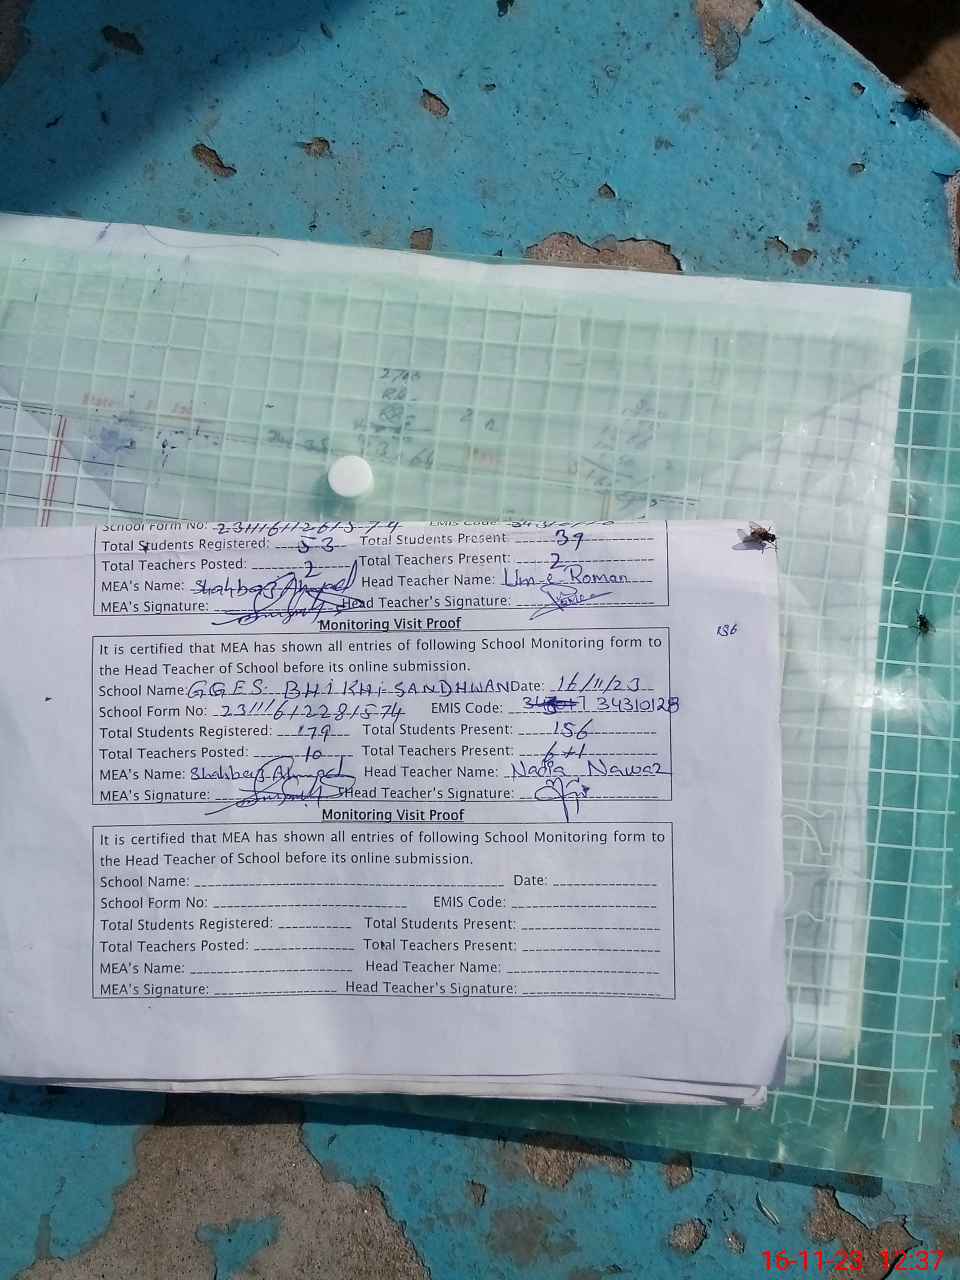 School Form No: 231116112615 74 EMIS Code
Total Students Registered: 53 Total Students Present 39
Total Teachers Posted: 2 Total Teachers Present: 2
MEA's Name: Shahbaz Ahmed Head Teacher Name: Um-e-Roman
MEA's Signature: Head Teacher's Signature:
Monitoring Visit Proof
It is certified that MEA has shown all entries of following School Monitoring form to
the Head Teacher of School before its online submission.
School Name: GGES BHIKHI SANDHWAN Date: 16/11/23
School Form No: 231116122811574 EMIS Code: 34310128
Total Students Registered: 179 Total Students Present: 156
Total Teachers Posted: 10 Total Teachers Present: 6+1
MEA's Name: Shahbaz Ahmed Head Teacher Name: Nadia Nawaz
MEA's Signature: Head Teacher's Signature:
156
Monitoring Visit Proof
It is certified that MEA has shown all entries of following School Monitoring form to
the Head Teacher of School before its online submission.
School Name: Date:
School Form No: EMIS Code:
Total Students Registered: Total Students Present:
Total Teachers Posted: Total Teachers Present:
MEA's Name: Head Teacher Name:
MEA's Signature: Head Teacher's Signature:
16-11-23 12:37